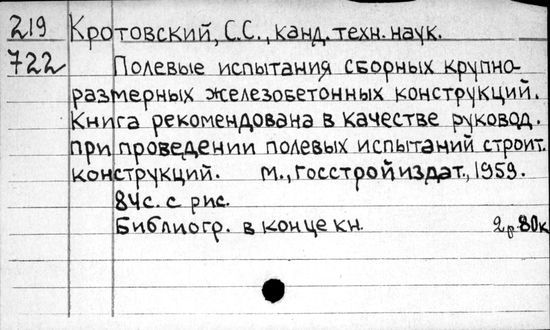 219 Кротовский, С.С., канд. техн. наук.
722 Полевые испытания сборных крупно-
размерных железобетонных конструкций.
Книга рекомендована в качестве руковод.
при проведении полевых испытаний строит.
конструкций. М., Госстройиздат, 1959.
84с. с рис.
Библиогр. в конце кн. 2р.80к